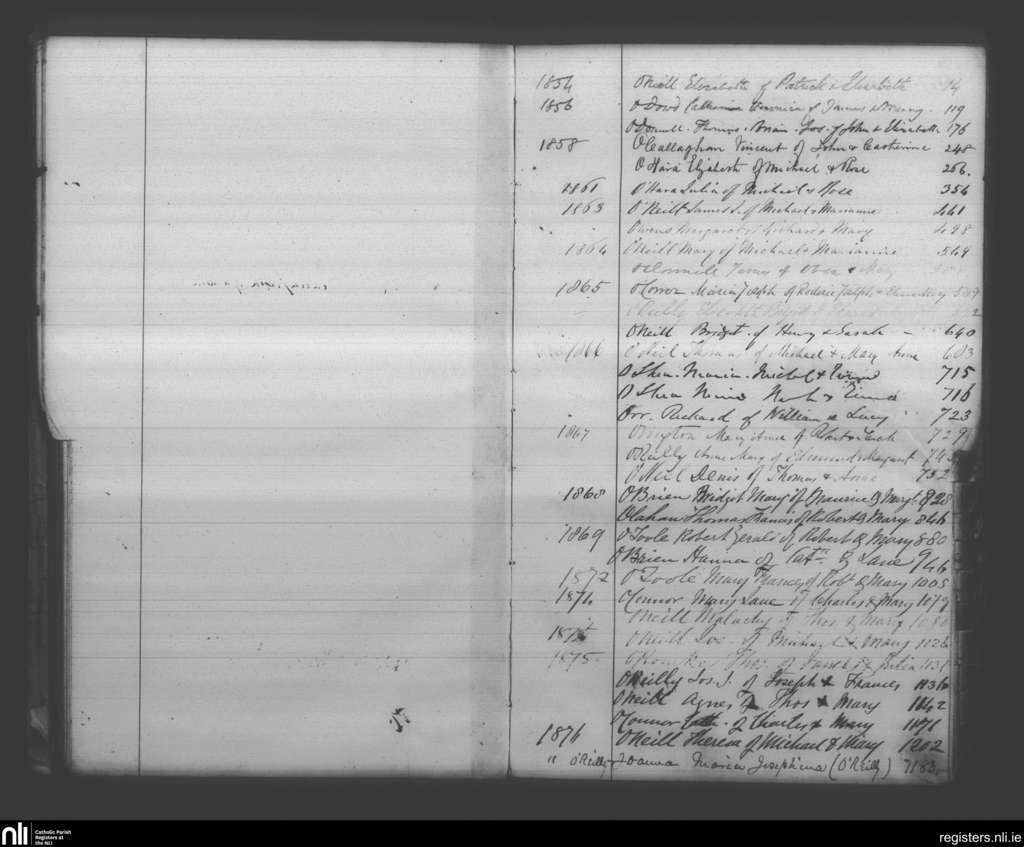 1854 O'Neill Elizabeth of Patrick & Elizabeth 14
1856 O'Dowd Catherine Veronica of James & Mary. 119
O'Donnell. Thomas. Brian. Jos. of John & Elizabeth 176
1858 O'Callaghan Vincent of John & Catherine 248
O'Hara Elizabeth of Michael & Rose 256.
1861 O'Hara Julia of Michael & Rose 354
1863 O'Neill James J. of Michael & Marianne 441
Owens Margaret of Richard & Mary 498
1864 O'Neill Mary of Michael & Marianne 549
O'Connell James of & Mary
1865 O'Connor Maria Joseph of Roderic Joseph & 589
O'Reilly
O'Neill Bridget. of Henry & Sarah – 640
1866 O'Neil Thomas of Michael & Mary Anne 683
O'Shea. Maria. Michel & 715
O'Shea & 716
Orr. Richard of William & Lucy 723
1867 Mary Anne of Robert & 729
O'Reilly Anne Mary of Edmund & Margaret
O'Neil Denis of Thomas & Anne 752
1868 O'Brien Bridget Mary of Maurice & Margt. 828
Olahan Thomas Francis of Robert & Mary 846
1869 O'Toole Robert Gerald of Robert & Mary 880
O'Brien Hanna of Patk. & Jane 946
1872 O'Toole Mary Frances of Robt & Mary 1005
1874 O'Connor Mary Jane of Charles & Mary 1079
O'Neill Malachy of Thos & Mary 1080
1874 O'Neill Jos. of Michael & Mary 1126
1875 Thos. of James & Julia 1131
O'Reilly Jos. J. of Joseph & Frances 1136
O'Neill Agnes of Thos & Mary 1142
O'Connor Cath. of Charles & Mary 1171
1876 O'Neill Theresa of Michael & Mary 1202
" O'Reilly Joanna Maria Josephina (O'Reilly) 1183
nli Catholic Parish Registers at the NLI
registers.nli.ie